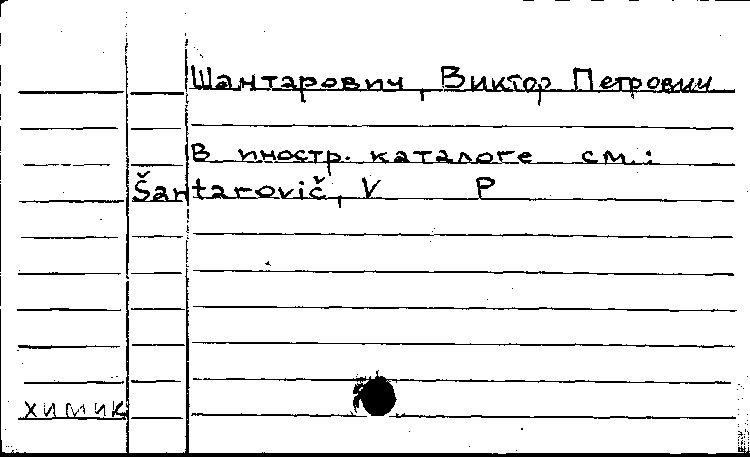 Шантарович, Виктор Петрович
В иностр. каталоге см.:
Šantarovič, V P
химик